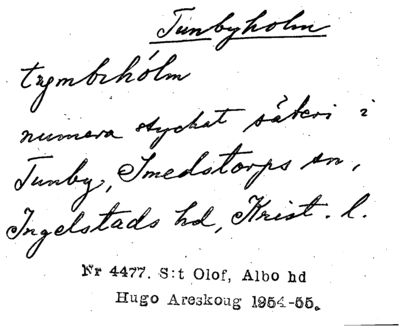 Tunbyholm
tẹmbɩhólm
numera styckat säteri i
Tunby, Smedstorps sn,
Ingelstads hd, Krist. l.
Nr 4477. S:t Olof, Albo hd
Hugo Areskoug 1954-55.